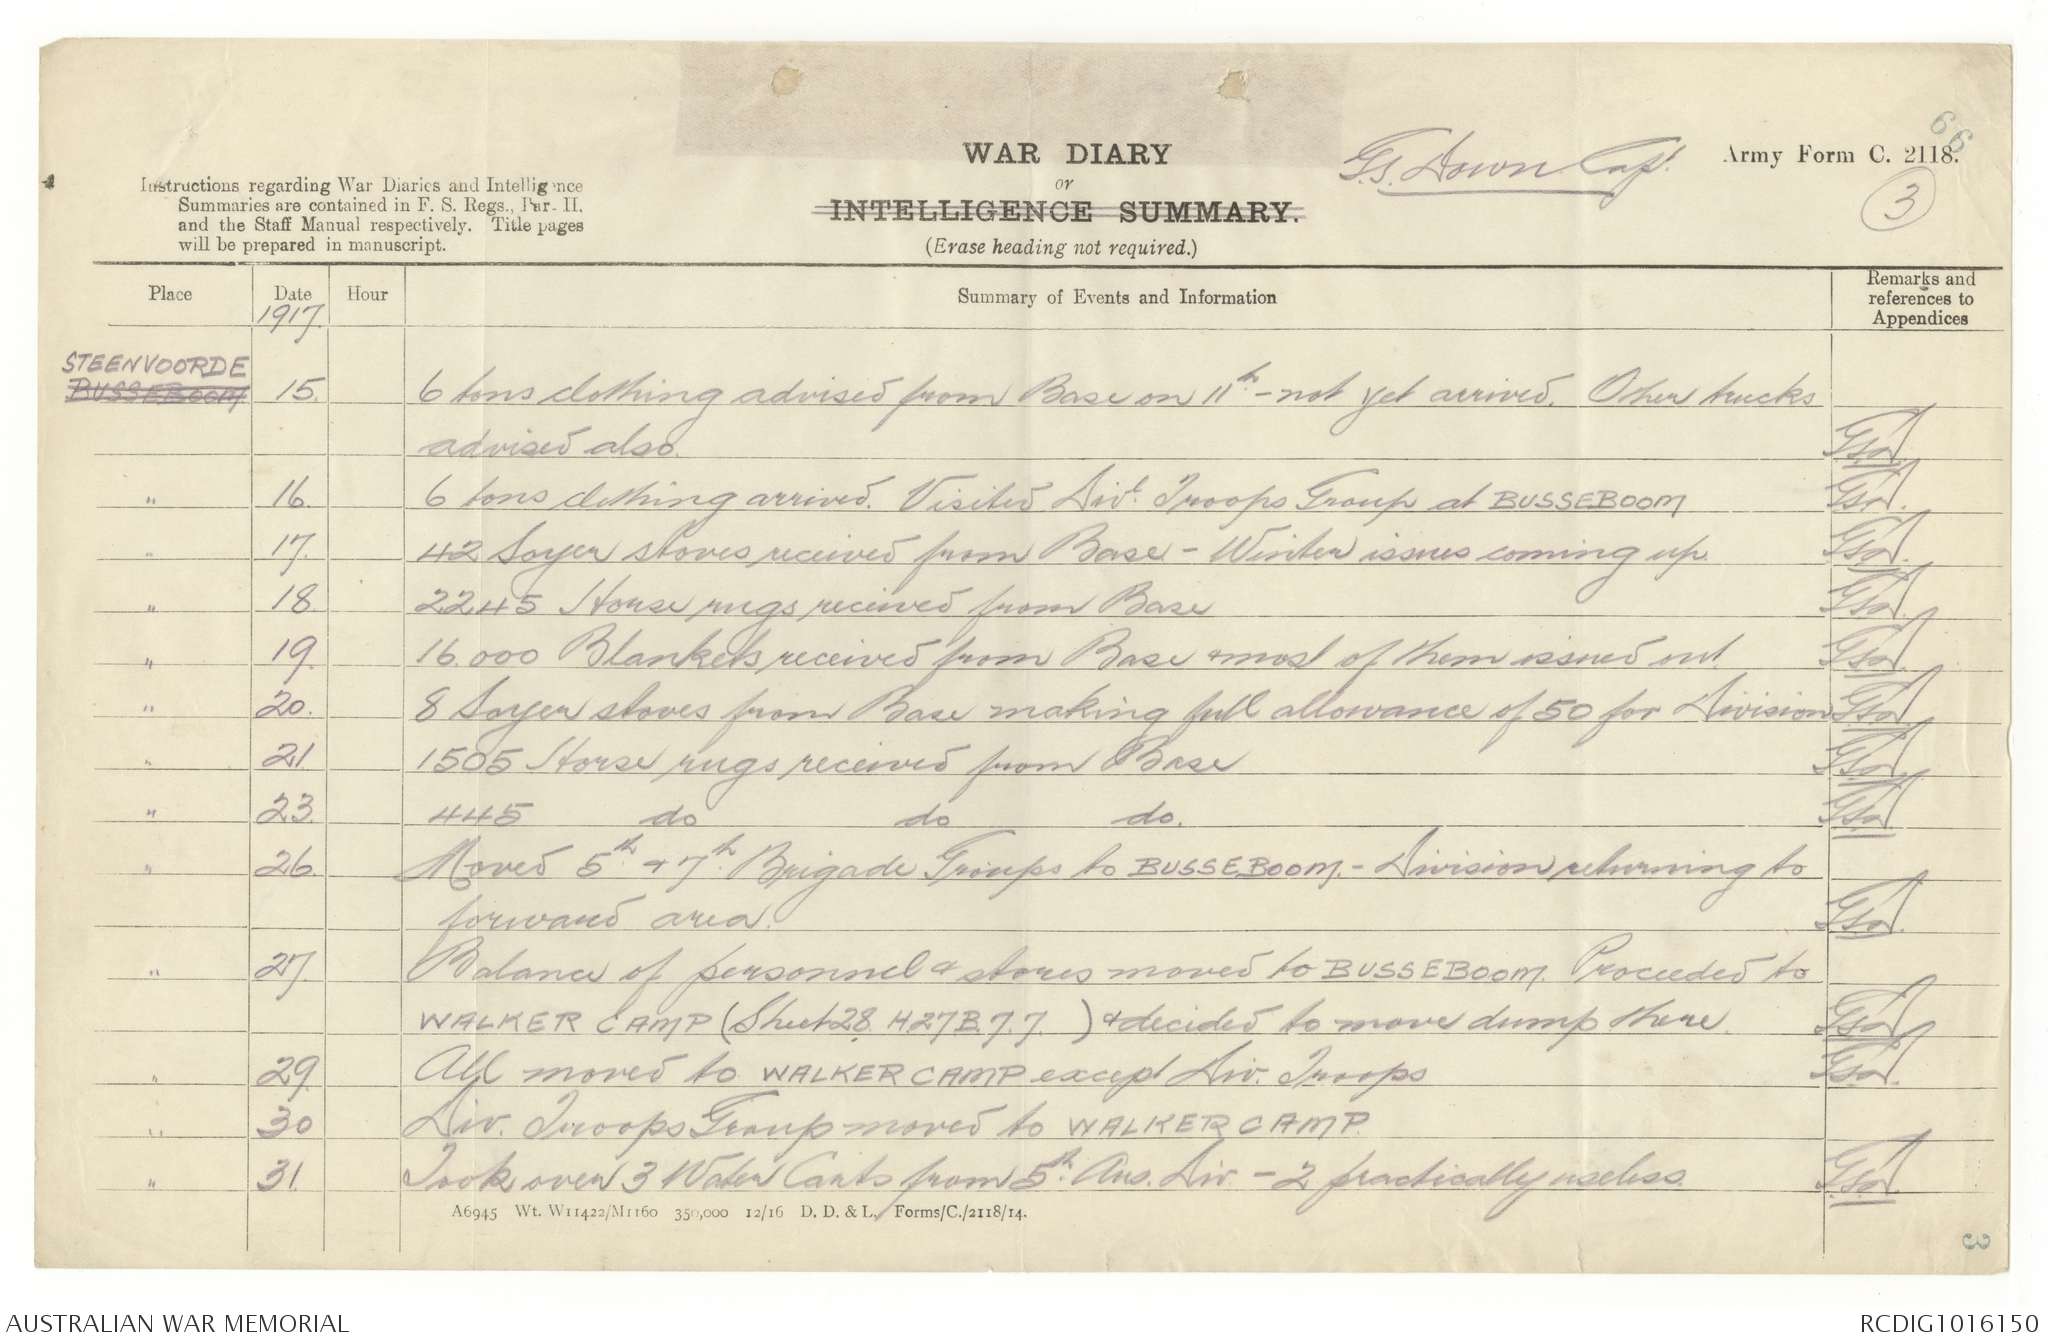 66
WAR DIARY
or
INTELLIGENCE SUMMARY.
(Erase heading not required.)
G.S. Down Capt.
Army Form C. 2118.
3
Instructions regarding War Diaries and Intelligence
Summaries are contained in F. S. Regs., Part II.
and the Staff Manual respectively. Title pages
will be prepared in manuscript.
Place Date Hour Summary of Events and Information Remarks and references to Appendices
1917.
STEENVOORDE
BUSSEBOOM 15. 6 tons clothing advised from Base on 11th - not yet arrived. Other trucks
advised also. GSD
" 16. 6 tons clothing arrived. Visited Divl. Troops Group at BUSSEBOOM GSD
" 17. 42 Soyer stoves received from Base - Winter issues coming up. GSD
" 18. 2245 Horse rugs received from Base GSD
" 19. 16.000 Blankets received from Base & most of them issued out GSD
" 20. 8 Soyer stoves from Base making full allowance of 50 for Division GSD
" 21 1505 Horse rugs received from Base GSD
" 23. 445 do do do. GSD
" 26. Moved 5th & 7th Brigade Groups to BUSSEBOOM. - Division returning to
forward area. GSD
" 27. Balance of personnel & stores moved to BUSSEBOOM. Proceeded to
WALKER CAMP (Sheet 28. H.27.B.7.7. ) & decided to move dump there. GSD
" 29. All moved to WALKER CAMP except Div. Troops GSD
" 30 Div. Troops Group moved to WALKER CAMP.
" 31. Took over 3 Water Carts from 5th Aus. Div. - 2 practically useless. GSD
A6945 Wt. W11422/M1160 350,000 12/16 D. D. & L. Forms/C./2118/14.
3
AUSTRALIAN WAR MEMORIAL RCDIG1016150